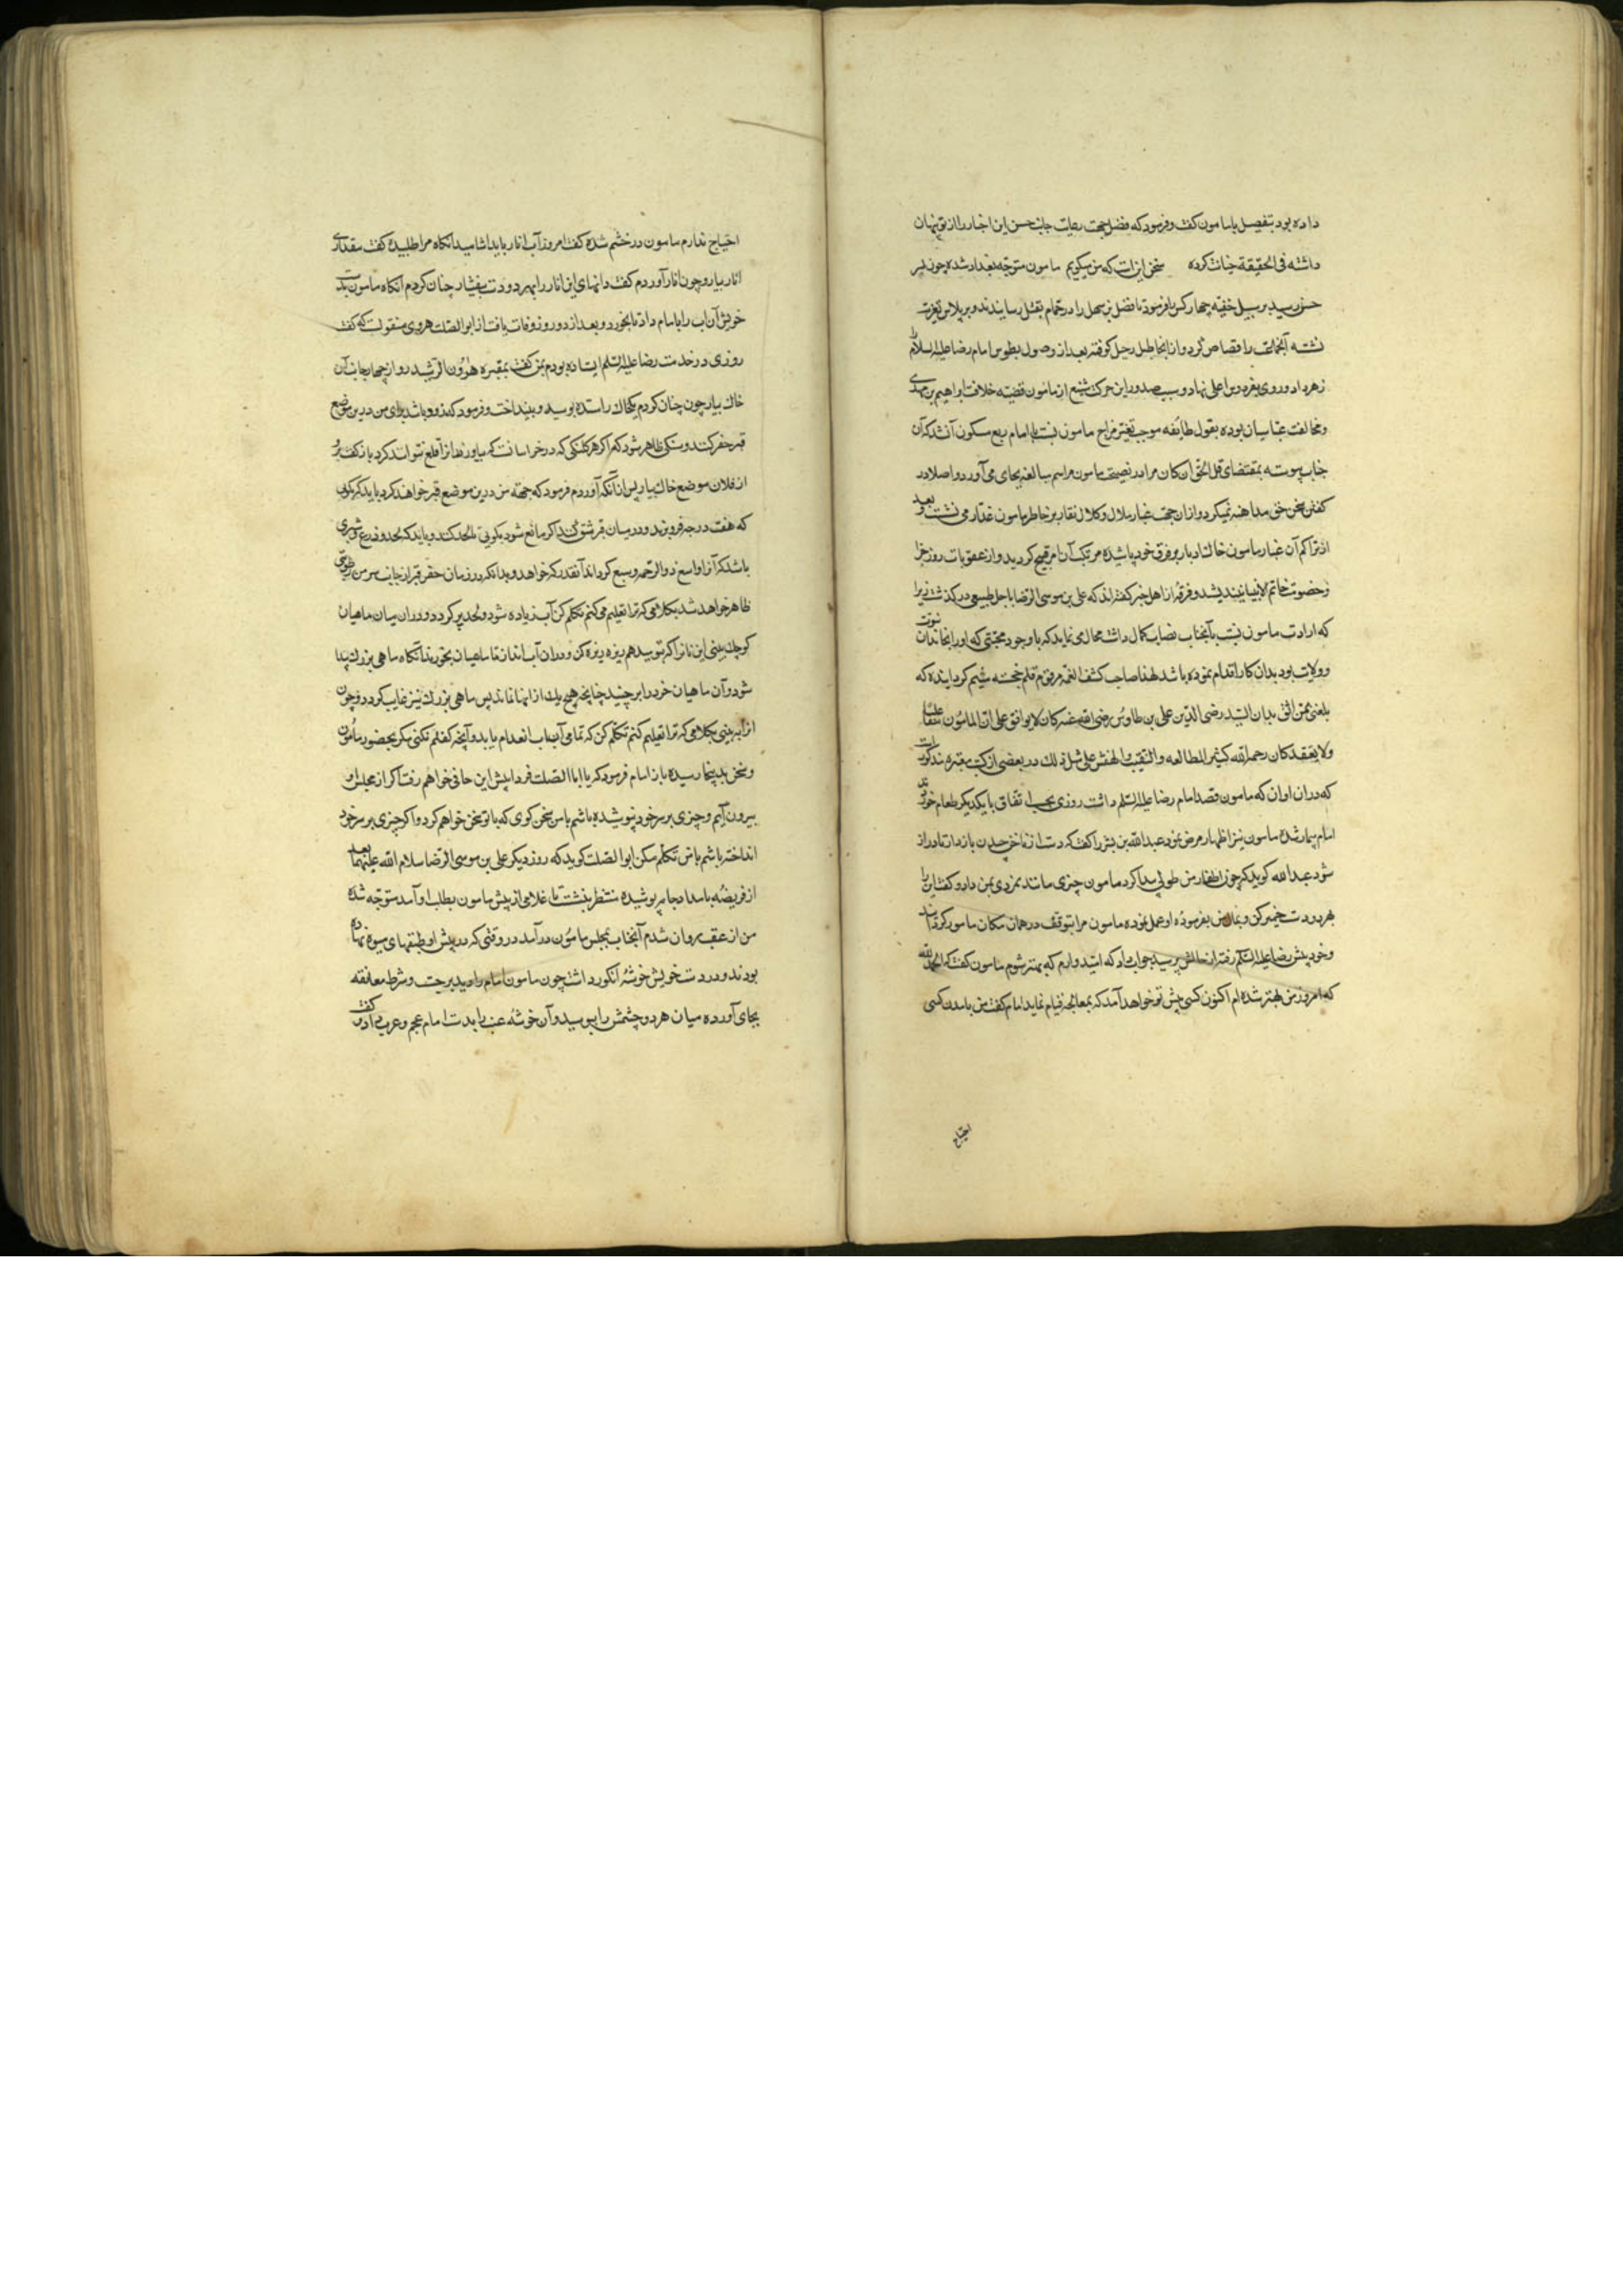 داده بود بتفصیل با مامون کفت و فرمود که فضل بجهت رعایت جانب حسن این اخبار را از تو پنهان
داشته فی الحقیقة خیانت کرده سخن این است که من میکویم مامون متوجه بغداد شده چون بسر
حسن رسید بر سبیل خفیه چهار کس را فرمود تا فضل بن سهل را در حمام بقتل رسانیدند و بر پلاس تعزیت
نشسته آنجماعت را قصاص کرد و از انجا طبل رحیل کوفته بعد از وصول بطوس امام رضا علیه السلام را
زهر داد و روی بفردوس اعلی نهاد و سبب صدور این حرکت شنیع از مامون قضیه خلافت ابراهیم بن مهدی
و مخالفت عباسیان بوده بقول طائفه موجب تغیر مزاج مامون نسبت با امام ربع مسکون آن شد که آن
جناب پیوسته بمقتضای قل الحق ان کان مرا در نصیحت مامون مراسم مبالغه بجای می آورد و اصلا در
کفتن سخن حق مداهنه نمیکرد و از ان جهت غبار ملال و کلال نقار بر خاطر مامون غدار می نشست و بعد
از تراکم آن غبار مامون خاک ادبار بر فرق خود پاشیده مرتکب آن امر قبیح کردید و از عقوبات روز جزا
و خصومت خاتم الانبیا نیندیشد و فرقهٔ از اهل خبر کفته اند که علی بن موسی الرضا باجل طبیعی در کذشت زیرا
که ارادت مامون نسبت بآنجناب نصاب کمال داشت محال می نماید که با وجود محبتی که او را بخاندان نبوت
و ولایت بود بدان کار اقدام نموده باشد لهذا صاحب کشف الغمه مرقوم قلم خجسته شیم کردانیده که
بلغنی ممن اثق به ان السید رضی الدین علی بن طاوس رضی الله عنه کان لا یوافق علی ان المامون سقا علیا
ولا یعتقد کان رحمه الله کثیر المطالعه و التنقیب و التفتیش علی مثل ذلک در بعضی از کتب معتبره مذکورست
که در ان اوان که مامون قصد امام رضا علیه السلم داشت روزی بحسب اتفاق با یکدیکر طعام خوردند
امام بیمار شده مامون نیز اظهار مرض نمود عبد الله بن بشر را کفت که دست از ناخن چیدن باز دار تا دراز
شود عبد الله کوید که چون اظفار من طولی پیدا کرد مامون چیزی مانند تمر هندی بمن داد و کفت این را
بهر دو دست خمیر کن و من بفرموده او عمل نموده مامون مرا بتوقف در همان مکان مامور کردانید
و خود پیش رضا علیه السلم رفته از حالش پرسید جواب داد که امیدوارم که بهتر شوم مامون کفت که الحمد لله
که امروز من بهتر شده ام اکنون کسی پیش تو خواهد آمد که بمعالجه قیام نماید امام کفت من بآمدن کسی
احتیاج
احتیاج ندارم مامون در خشم شده کفت امروز آب انار باید اشامید انکاه مرا طلبیده کفت مقداری
انار بیار و چون انار آوردم کفت دانهای این انار را بهر دو دست بیفشار چنان کردم انکاه مامون بدست
خویش آن آب را بامام داد تا بخورد و بعد از دو روز وفات یافت از ابو الصلت هروی منقولست که کفت
روزی در خدمت رضا علیه السلم ایستاده بودم بمن کفت بمقبره هارون الرشید رو از چهار جانب آن
خاک بیار چون چنان کردم یکخاک را ستده بوسید و بینداخت و فرمود که زود باشد برای من درین موضع
قبر حفر کنند و سنکی ظاهر شود که اکر هر کلنکی که در خراسانست که بیاورند انرا قلع نتوانند کرد باز کفت برو
از فلان موضع خاک بیار پس از آنکه آوردم فرمود که جهة من درین موضع قبر خواهند کرد باید که بکویی
که هفت درجه فرو برند و در میان قبر شق کنند اکر مانع شود بکویی تا لحد کنند و باید که لحد دو ذرع و شبری
باشد که آنرا واسع ذو الرحمه وسیع کرداند آنقدر که خواهد و بدانکه در زمان حفر قبر از جانب سر من رطوبتی
ظاهر خواهد شد بکلامی که ترا تعلیم می کنم تکلم کن آب زیاده شود و لحد پر کردد و در ان میان ماهیان
کوچک بینی این نان را که بتو میدهم ریزه ریزه کن و در ان آب انداز تا ماهیان بخورند آنکاه ماهی بزرک پیدا
شود و آن ماهیان خرد را برچیند چنانچه هیچ یک از انها نماند پس ماهی بزرک نیز غایب کردد و چون
این را ببینی بکلامی که ترا تعلیم کنم تکلم کن که تمامی آب انعدام یابد و آنچه کفتم نکنی مکر بحضور مأمون
و سخن بدینجا رسیده باز امام فرمود که یا ابا الصلت فردا پیش این جافی خواهم رفت اکر از مجلس او
بیرون آیم و چیزی بر سر خود نپوشیده باشم با من سخن کوی که با تو سخن خواهم کرد و اکر چیزی بر سر خود
انداخته باشم با من تکلم مکن ابو الصلت کوید که روز دیکر علی بن موسی الرضا سلام الله علیهما بعد
از فریضهٔ بامداد جامه پوشیده منتظر بنشست تا غلامی از پیش مامون بطلب او آمد متوجه شده
من از عقب روان شدم آنجناب بمجلس مامون در آمد در وقتی که در پیش او طبقهای میوه نهاده
بودند و در دست خویش خوشهٔ انکور داشت چون مامون امام را دید برجست و شرط معانقه
بجای آورده میان هر دو چشمش را ببوسید و آن خوشه عنب را بدست امام عجم و عرب داد و کفت